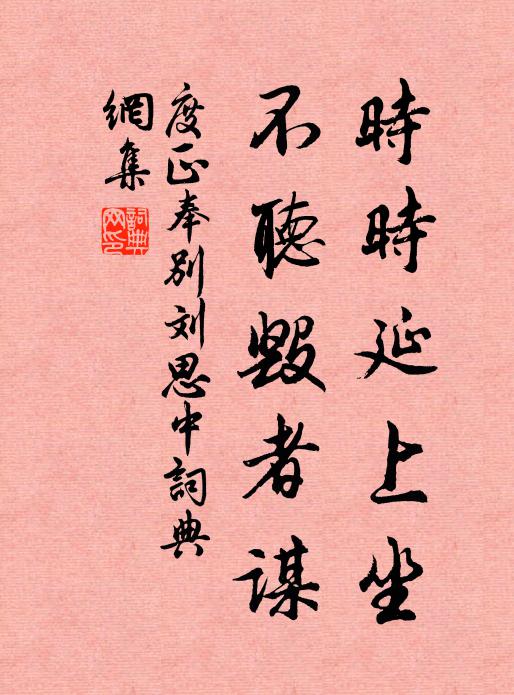 時時延上坐
不聽毀者謀
度正奉别刘思中詞典
網集
詞典
网印